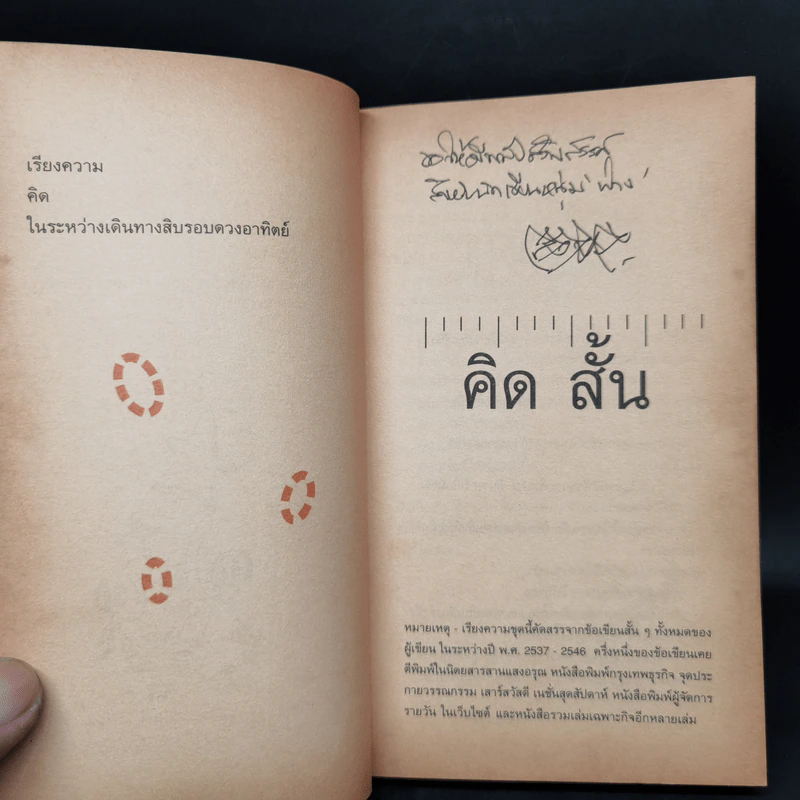 เรียงความ
คิด
ในระหว่างเดินทางสิบรอบดวงอาทิตย์
ขอให้มี
คิด สั้น
หมายเหตุ - เรียงความชุดนี้คัดสรรจากข้อเขียนสั้น ๆ ทั้งหมดของ
ผู้เขียน ในระหว่างปี พ.ศ. 2537 - 2546 ครึ่งหนึ่งของข้อเขียนเคย
ตีพิมพ์ในนิตยสารสานแสงอรุณ หนังสือพิมพ์กรุงเทพธุรกิจ จุดประ
กายวรรณกรรม เสาร์สวัสดี เนชั่นสุดสัปดาห์ หนังสือพิมพ์ผู้จัดการ
รายวัน ในเว็บไซต์ และหนังสือรวมเล่มเฉพาะกิจอีกหลายเล่ม